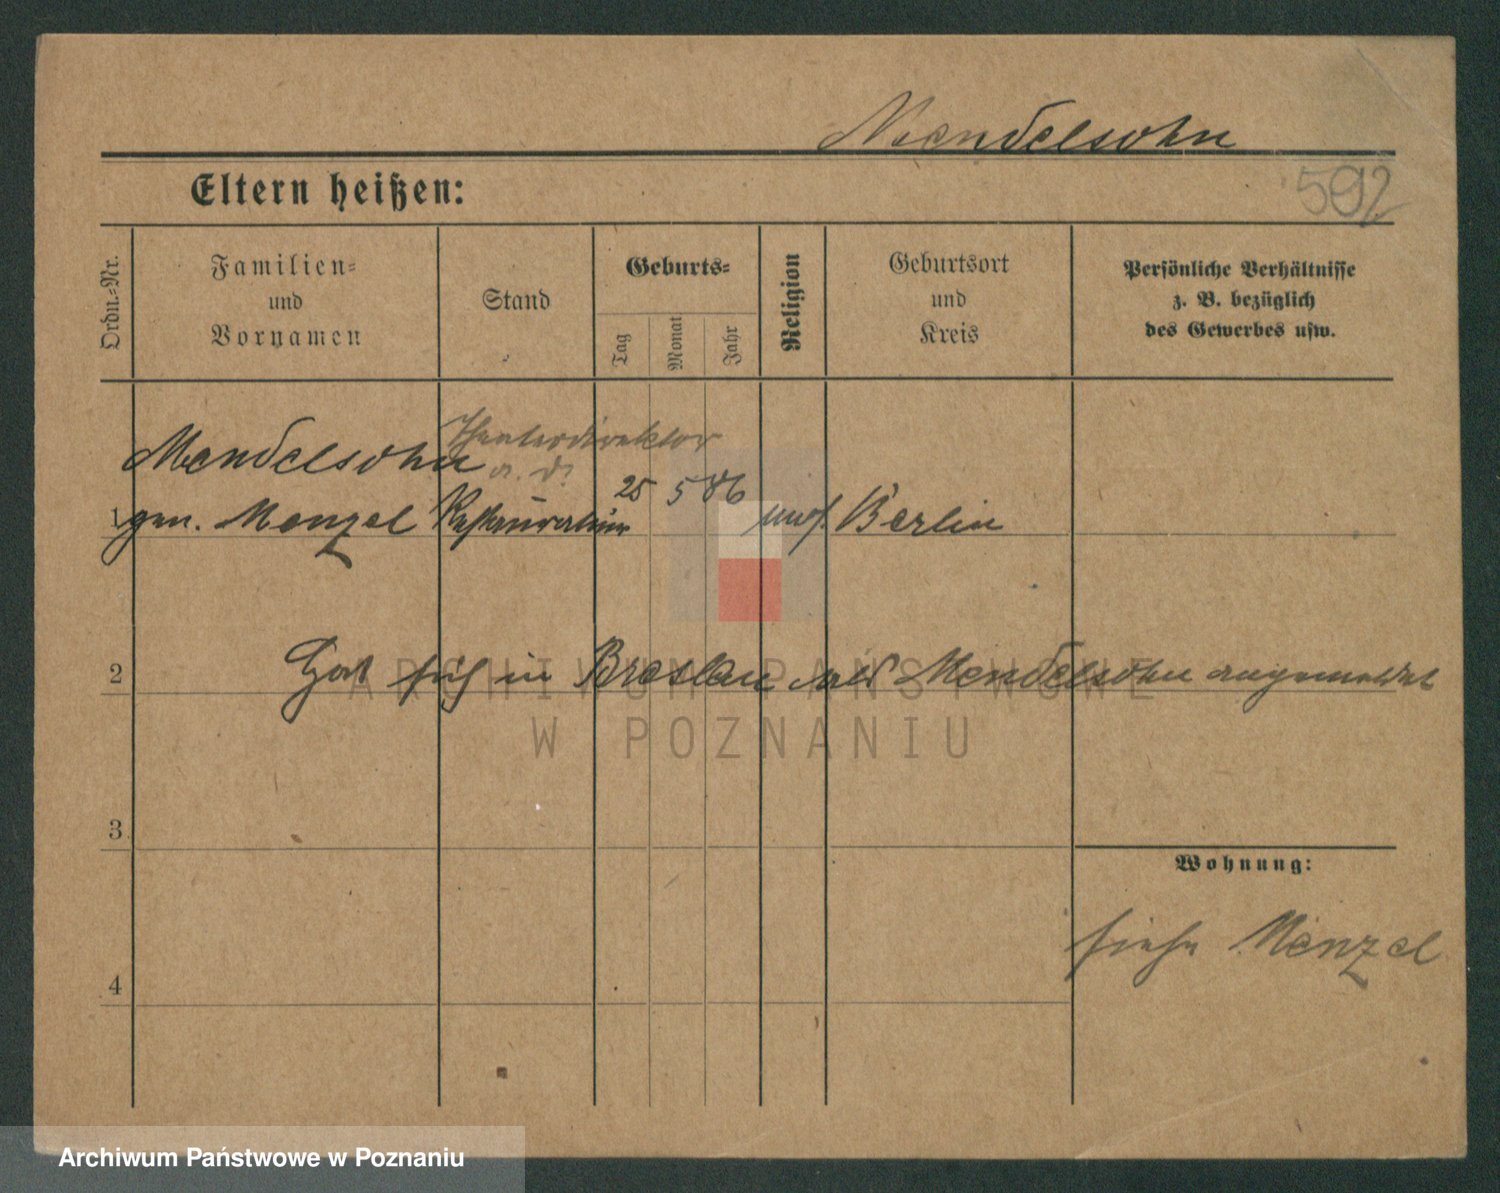 Mendelsohn
Eltern heißen:
592
Ordn.-Nr.
Familien-
und
Vornamen
Stand
Geburts-
Tag
Monat
Jahr
Religion
Geburtsort
und
Kreis
Persönliche Verhältnisse
z. B. bezüglich
des Gewerbes usw.
Mendelsohn
Theaterdirektor
a. D.
1 gen. Menzel 25 5 86 mos. Berlin
2 Hat sich in Breslau als Mendelsohn angemeldet
3
Wohnung:
siehe Menzel
4
ARCHIWUM PAŃSTWOWE
W POZNANIU
Archiwum Państwowe w Poznaniu